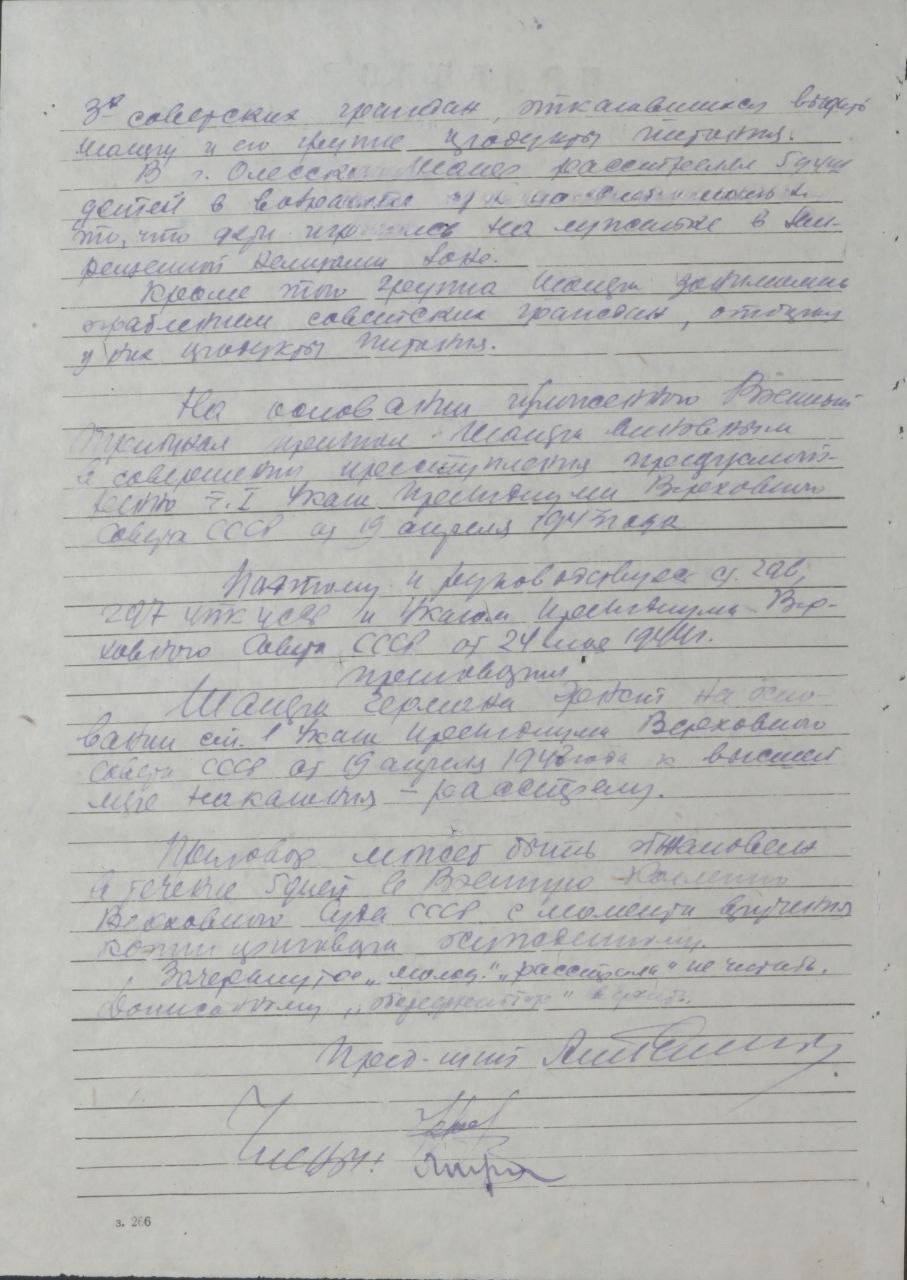 3х советских граждан, отказавшихся выдать
Шанцу и его группе продукты питания.
В г. Олесско Шанц расстрелял 5 душ
детей в возрасте
то, что дети игрались на лужайке в зап-
рещенной немцами зоне.
Кроме того группа Шанца занималась
ограблением советских граждан, отбирая
у них продукты питания.
На основании изложенного Военный
Трибунал признал Шанца виновным
в совершении преступления предусмот-
ренного ст. I Указа Президиума Верховного
Совета СССР от 19 апреля 1943 года
Поэтому и руководствуясь ст. 296,
297 УПК УССР и Указом Президиума Вер-
ховного Совета СССР от 24 мая 1944 г.
приговорил
Шанца Германа на осно-
вании ст. 1 Указа Президиума Верховного
Совета СССР от 19 апреля 1943 года к высшей
мере наказания – расстрелу.
Приговор может быть обжалован
в течение 5 дней в Военную Коллегию
Верховного Суда СССР с момента вручения
копии приговора осужденному.
Зачеркнутое „ “, „расстрела“ не читать.
Дописанному верить.
Пред-щий
Члены:
з. 266